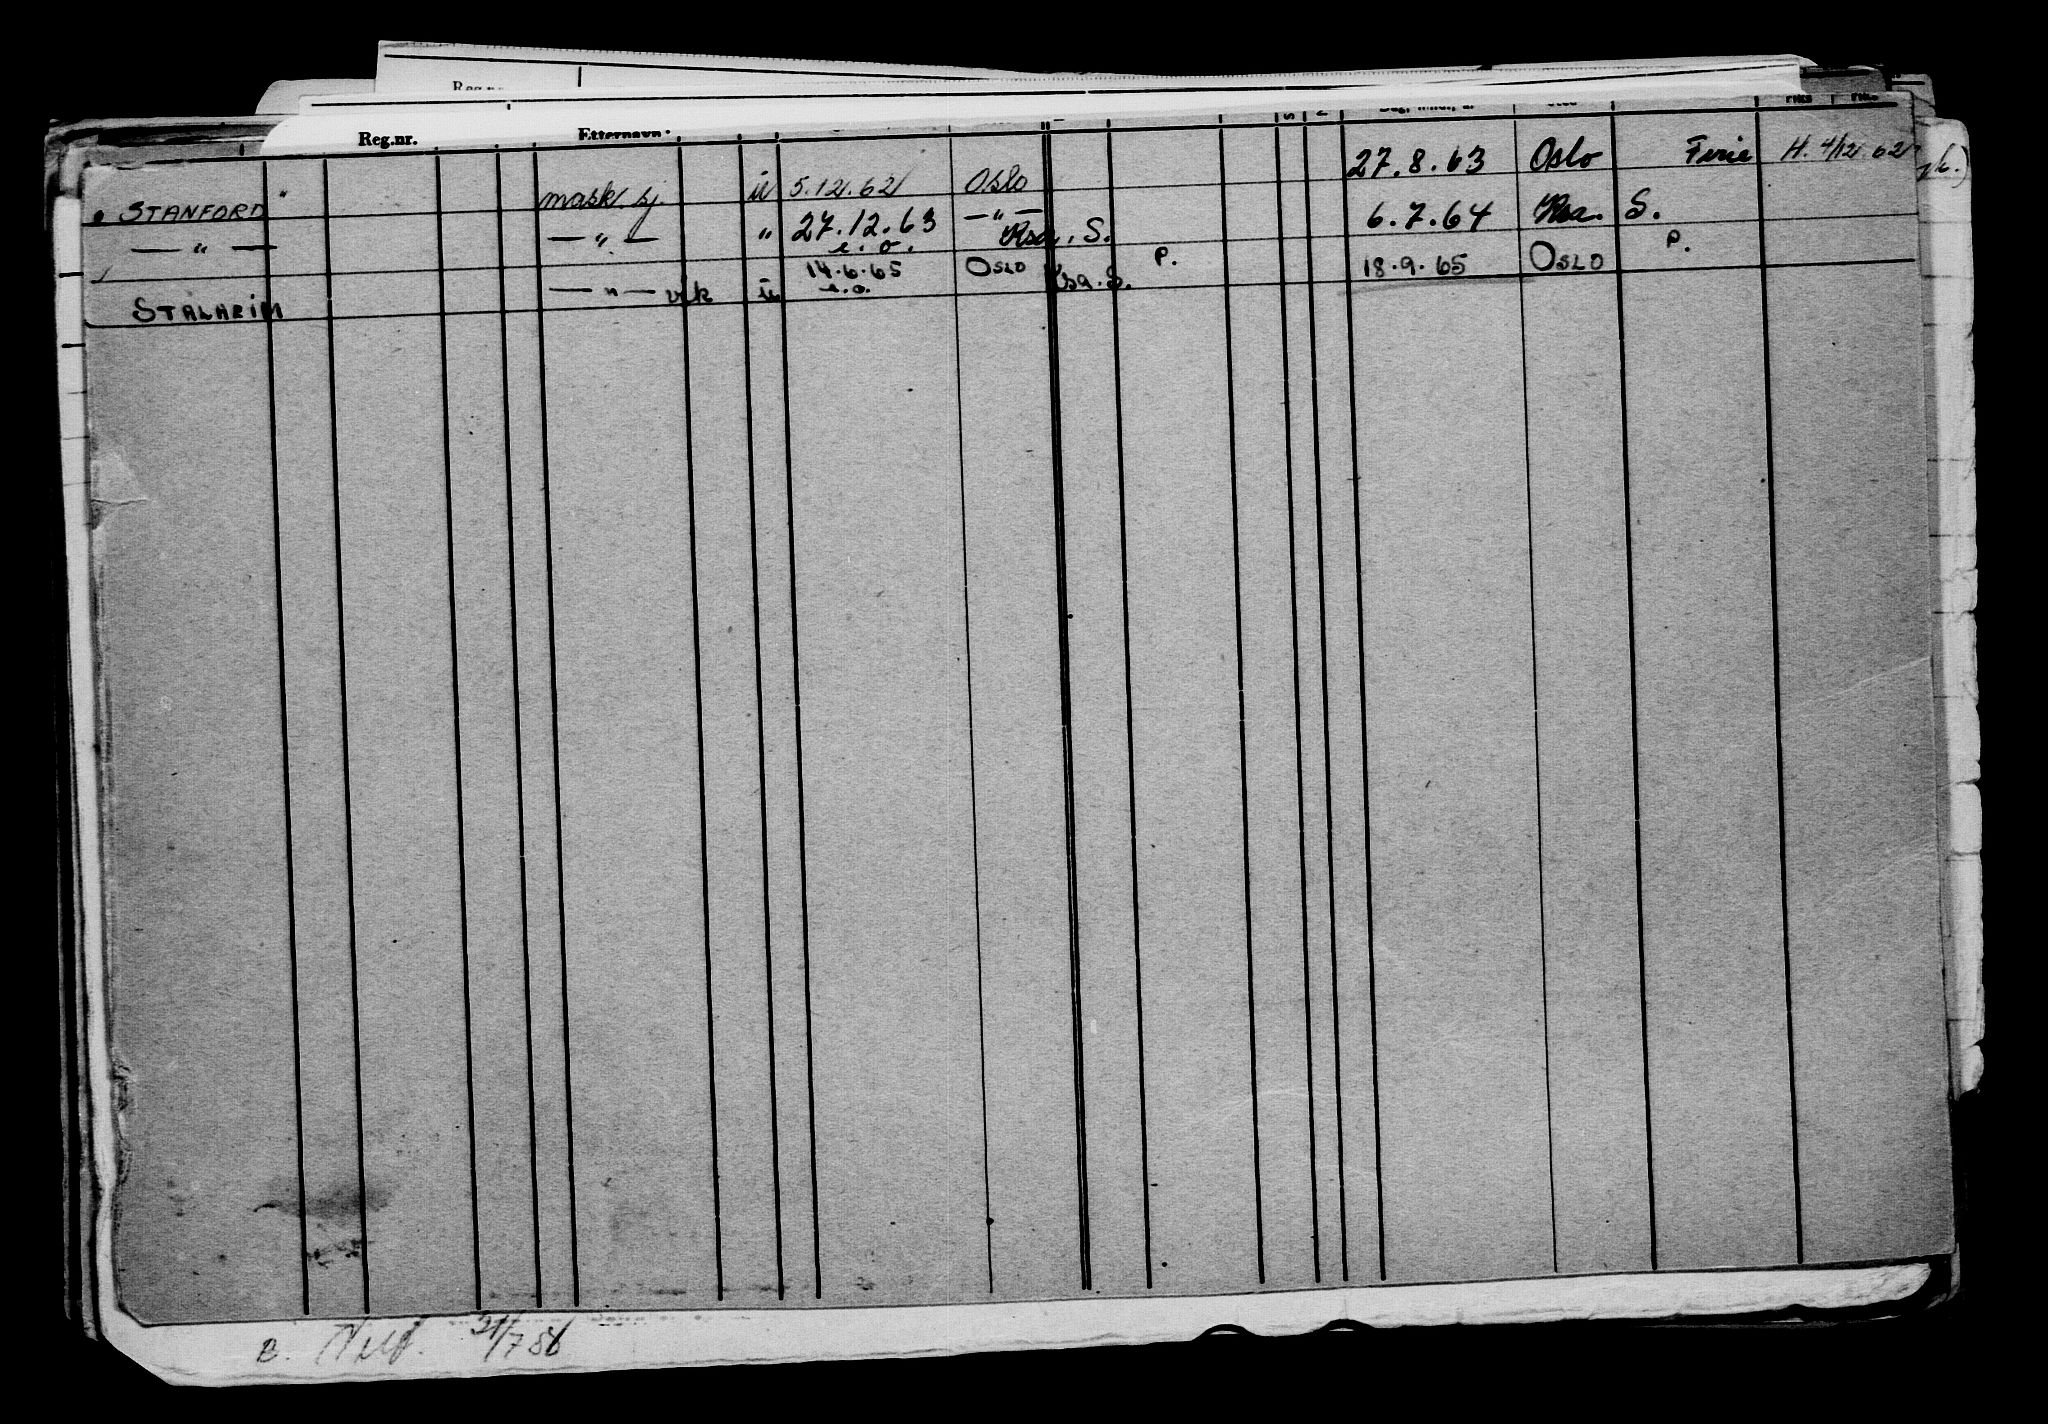 Reg.nr.
Reg.nr. Etternavn
STANFORD " mask. sj. u 5.12.62 Oslo 27.8.63 Oslo Ferie H. 4/12 62
— " — — " — " 27.12.63 — " — 6.7.64 Ksa. S.
s.o. Ksa. S. P. P.
14.6.65 Oslo 18.9.65 OSLO
STALHEIM — " — vik u s.o. Ksa. S.
B. 21/7 56